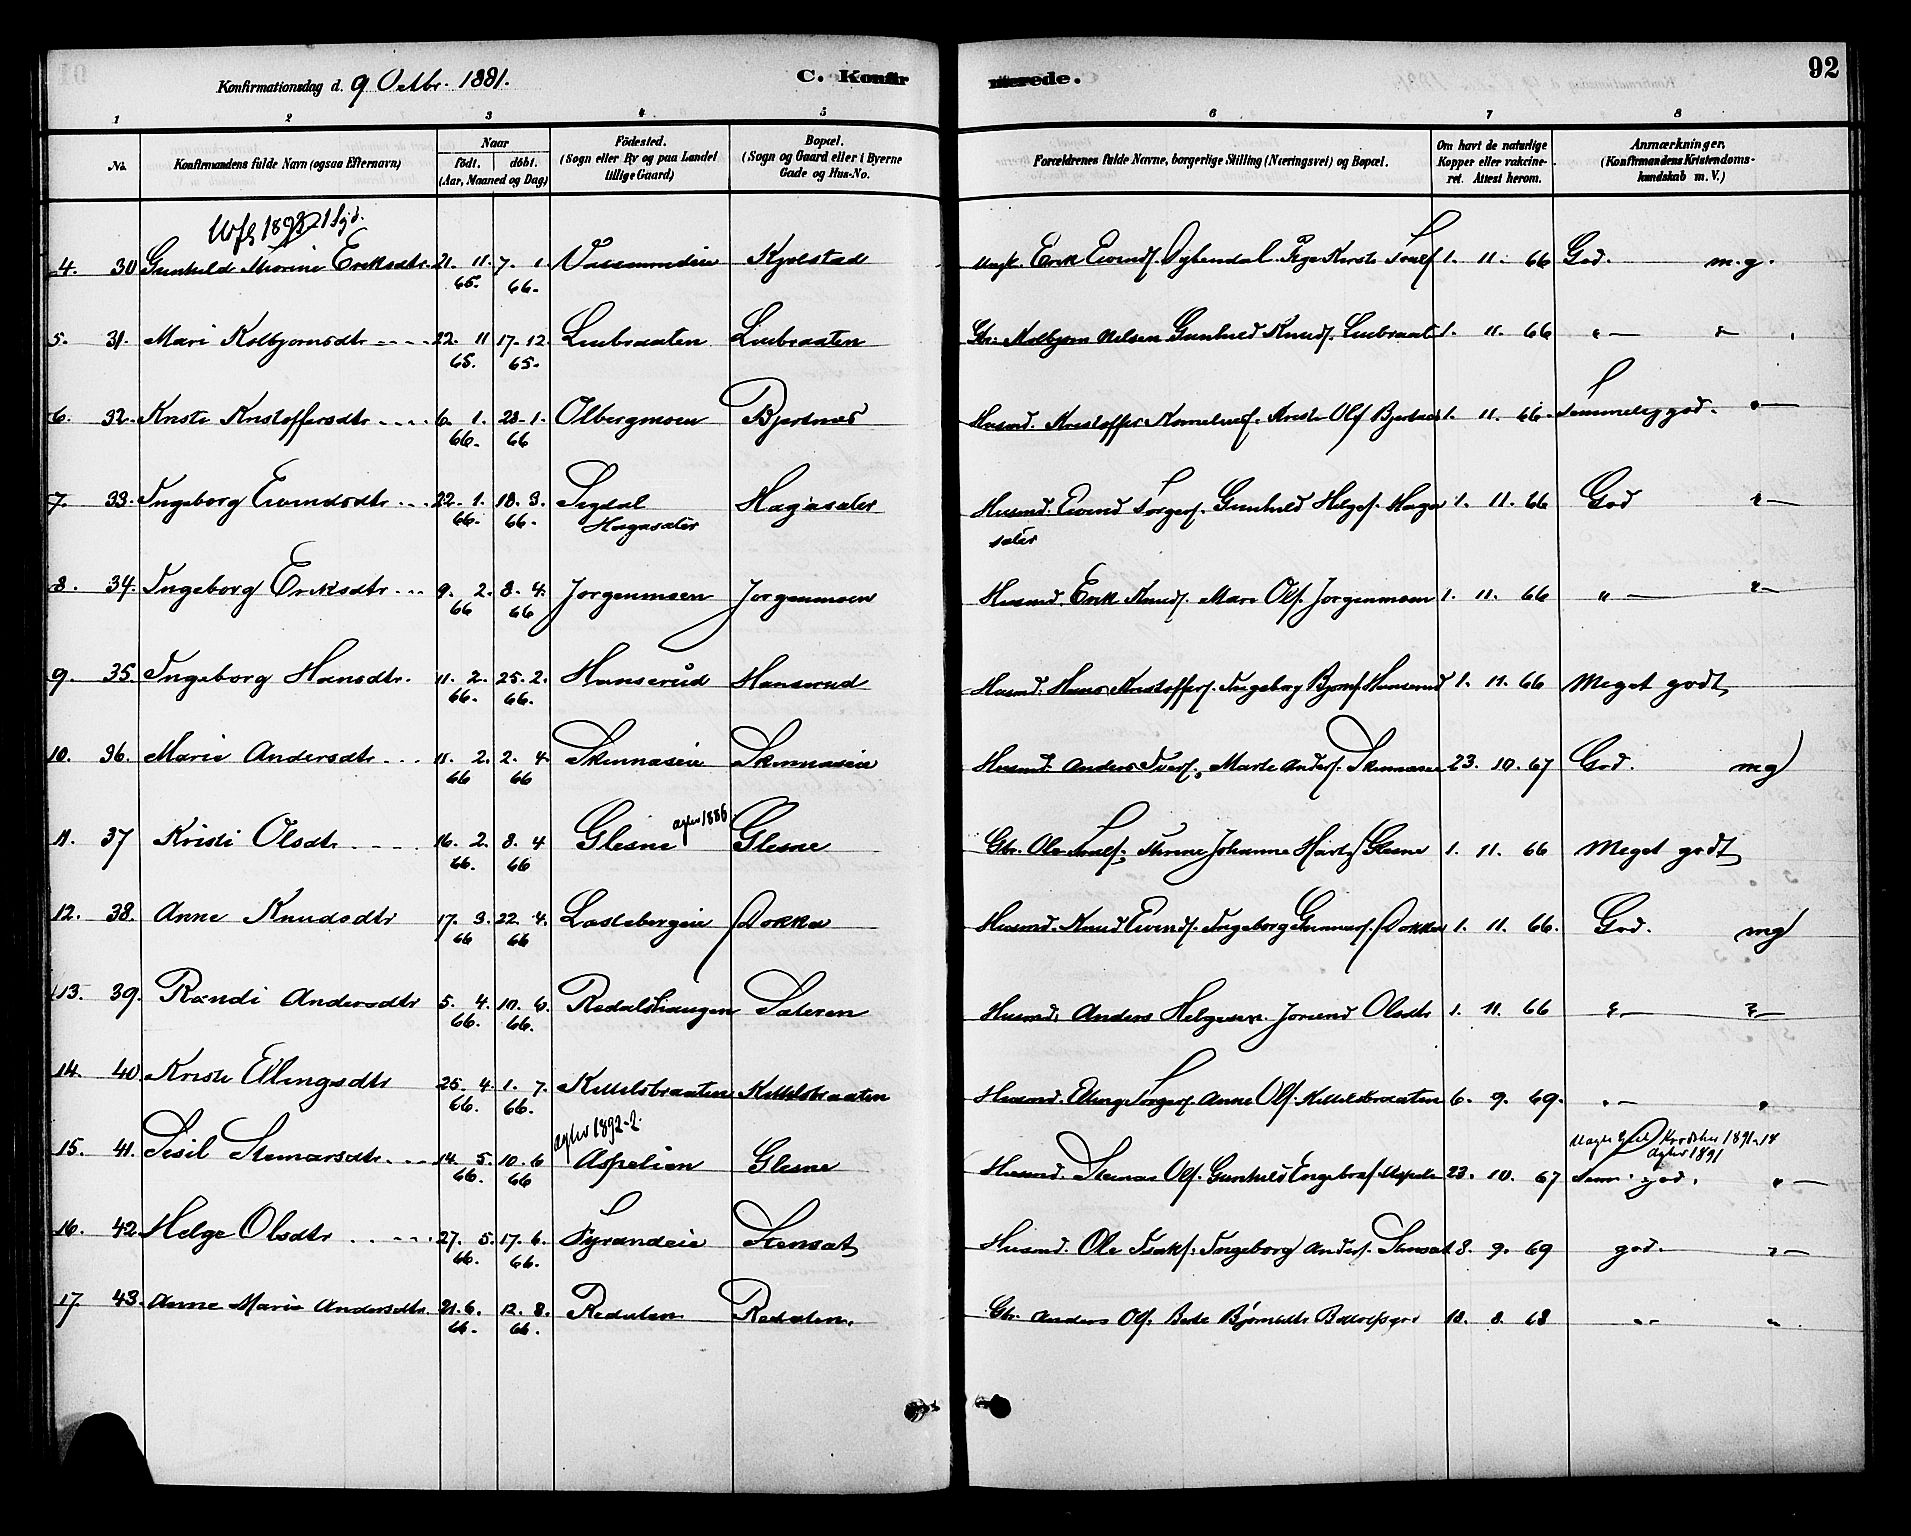 Konfirmationsdag d. 9 Octbr. 1881.
C. Konfirmerede.
92
1 2 3 4 5 6 7 8
No. Konfirmandens fulde Navn (ogsaa Efternavn) Naar födt. döbt. (Aar, Maaned og Dag) Födested. (Sogn eller By og paa Landet tillige Gaard) Bopæl. (Sogn og Gaard eller i Byerne Gade og Hus-No. Forældrenes fulde Navne, borgerlige Stilling (Næringsvei) og Bopæl. Om havt de naturlige Kopper eller vakcineret. Attest herom. Anmærkninger. (Konfirmandens Kristendomskundskab m. V.)
4. 30 Gunhild Eriksdtr. 21. 11. 65. 7. 1. 66. Kjølstad Erik 1. 11. 66 God. m.g.
5. 31. Mari Kolbjørnsdtr 22. 11 65. 17. 12. 65. Liebraaten Liebraaten Gbr. Kolbjørn Nelsen Gunhild Knuds. Liebraat 1. 11. 66 " — "
6. 32. Kristi Kristoffersdtr 6. 1. 66. 28. 1. 66 Olbergmoen Bjertnæs Husmd. Kristoffer Kornelius. Kristi Ols. Bjertnæs 1. 11. 66. Temmelig god. " —
7. 33. Ingeborg Eivindsdtr 22. 1. 66. 18. 3. 66. Sigdal Hagasæter Hagasæter Husmd. Eivind Torgers. Gunhild Helges. Haga sæter 1. 11. 66 God " —
8. 34. Ingeborg Eriksdtr 9. 2. 66 8. 4. 66 Jorgenmoen Jorgenmoen Husmd. Erik Knuds. Mari Ols. Jorgenmoen 1. 11. 66 " — " —
9. 35. Ingeborg Hansdtr. 11. 2. 66. 25. 2. 66. Hanserud Hanserud Husmd. Hans Kristoffers. Ingeborg Bjørns. Hanserud 1. 11. 66 Meget godt
10. 36. Marie Andersdtr 11. 2. 66 2. 4. 66 Skinnaseie Skinnaseie Husmd. Anders Ivers. Marte Anders. Skinnaseie 23. 10. 67 God. mg
11. 37 Kristi Olsdtr 16. 2. 66. 8. 4 66 Glesne agter 1886 Glesne Gbr. Ole Johanne Glesne 1. 11. 66 Meget godt
12. 38. Anne Knudsdtr 17. 3. 66 22. 4. 66 Lostebergeie Dokka Husmd. Knud Eivends. Ingeborg Gunnars. Dokka 1. 11. 66. God. mg
13. 39. Randi Andersdtr 5. 4. 66. 10. 6. 66. Redalshaugen Sæteren Husmd. Anders Helgesen. Jorand Olsdtr 1. 11. 66 " — " —
14. 40. Kristi Ellingsdtr 25. 4. 66. 1. 7. 66. Kittilsbraaten Kittilsbraaten Husmd. Elling Torgers. Anne Ols. Kittilsbraaten 6. 9. 69. " — "
agter 1892-2.
15. 41. Sisil Stenarsdtr 14. 5. 66. 10. 6 66 Aspelien Glesne Husmd. Stenar Ols. Gunhild Engebr. Aspelie 23. 10. 67 Tem. god. " —
1891-14
Agter 1891
16. 42. Helge Olsdtr 27. 5. 66. 17. 6. 66. Tyrandeie Stensat Husmd. Ole Isaks. Ingeborg Anders. Stensat 3. 9. 69 god. " —
17. 43. Anne Marie Andersdtr. 21. 6. 66. 12. 8. 66. Redalen Redalen. Gbr. Anders Ols. Bjørnsdtr 18. 8. 68 " — "